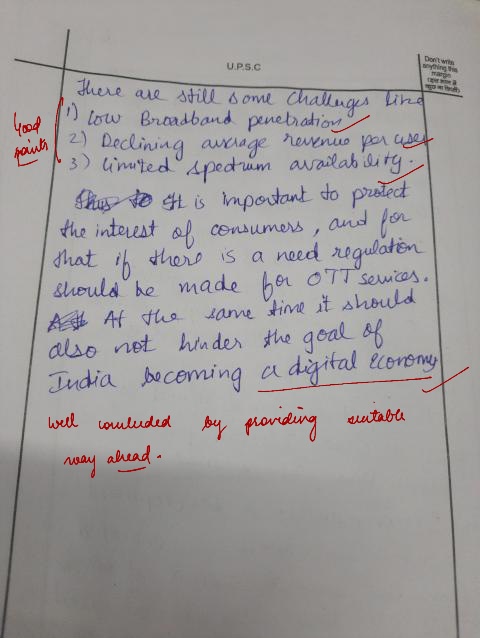 U.P.S.C
Don't write
anything this
margin
There are still some challenges like
Good
points
1) Low Broadband penetration
2) Declining average revenue per user
3) Limited spectrum availability.
It is important to protect
the interest of consumers, and for
that if there is a need regulation
should be made for OTT services.
At the same time it should
also not hinder the goal of
India becoming a digital economy
Well concluded by providing suitable
way ahead.